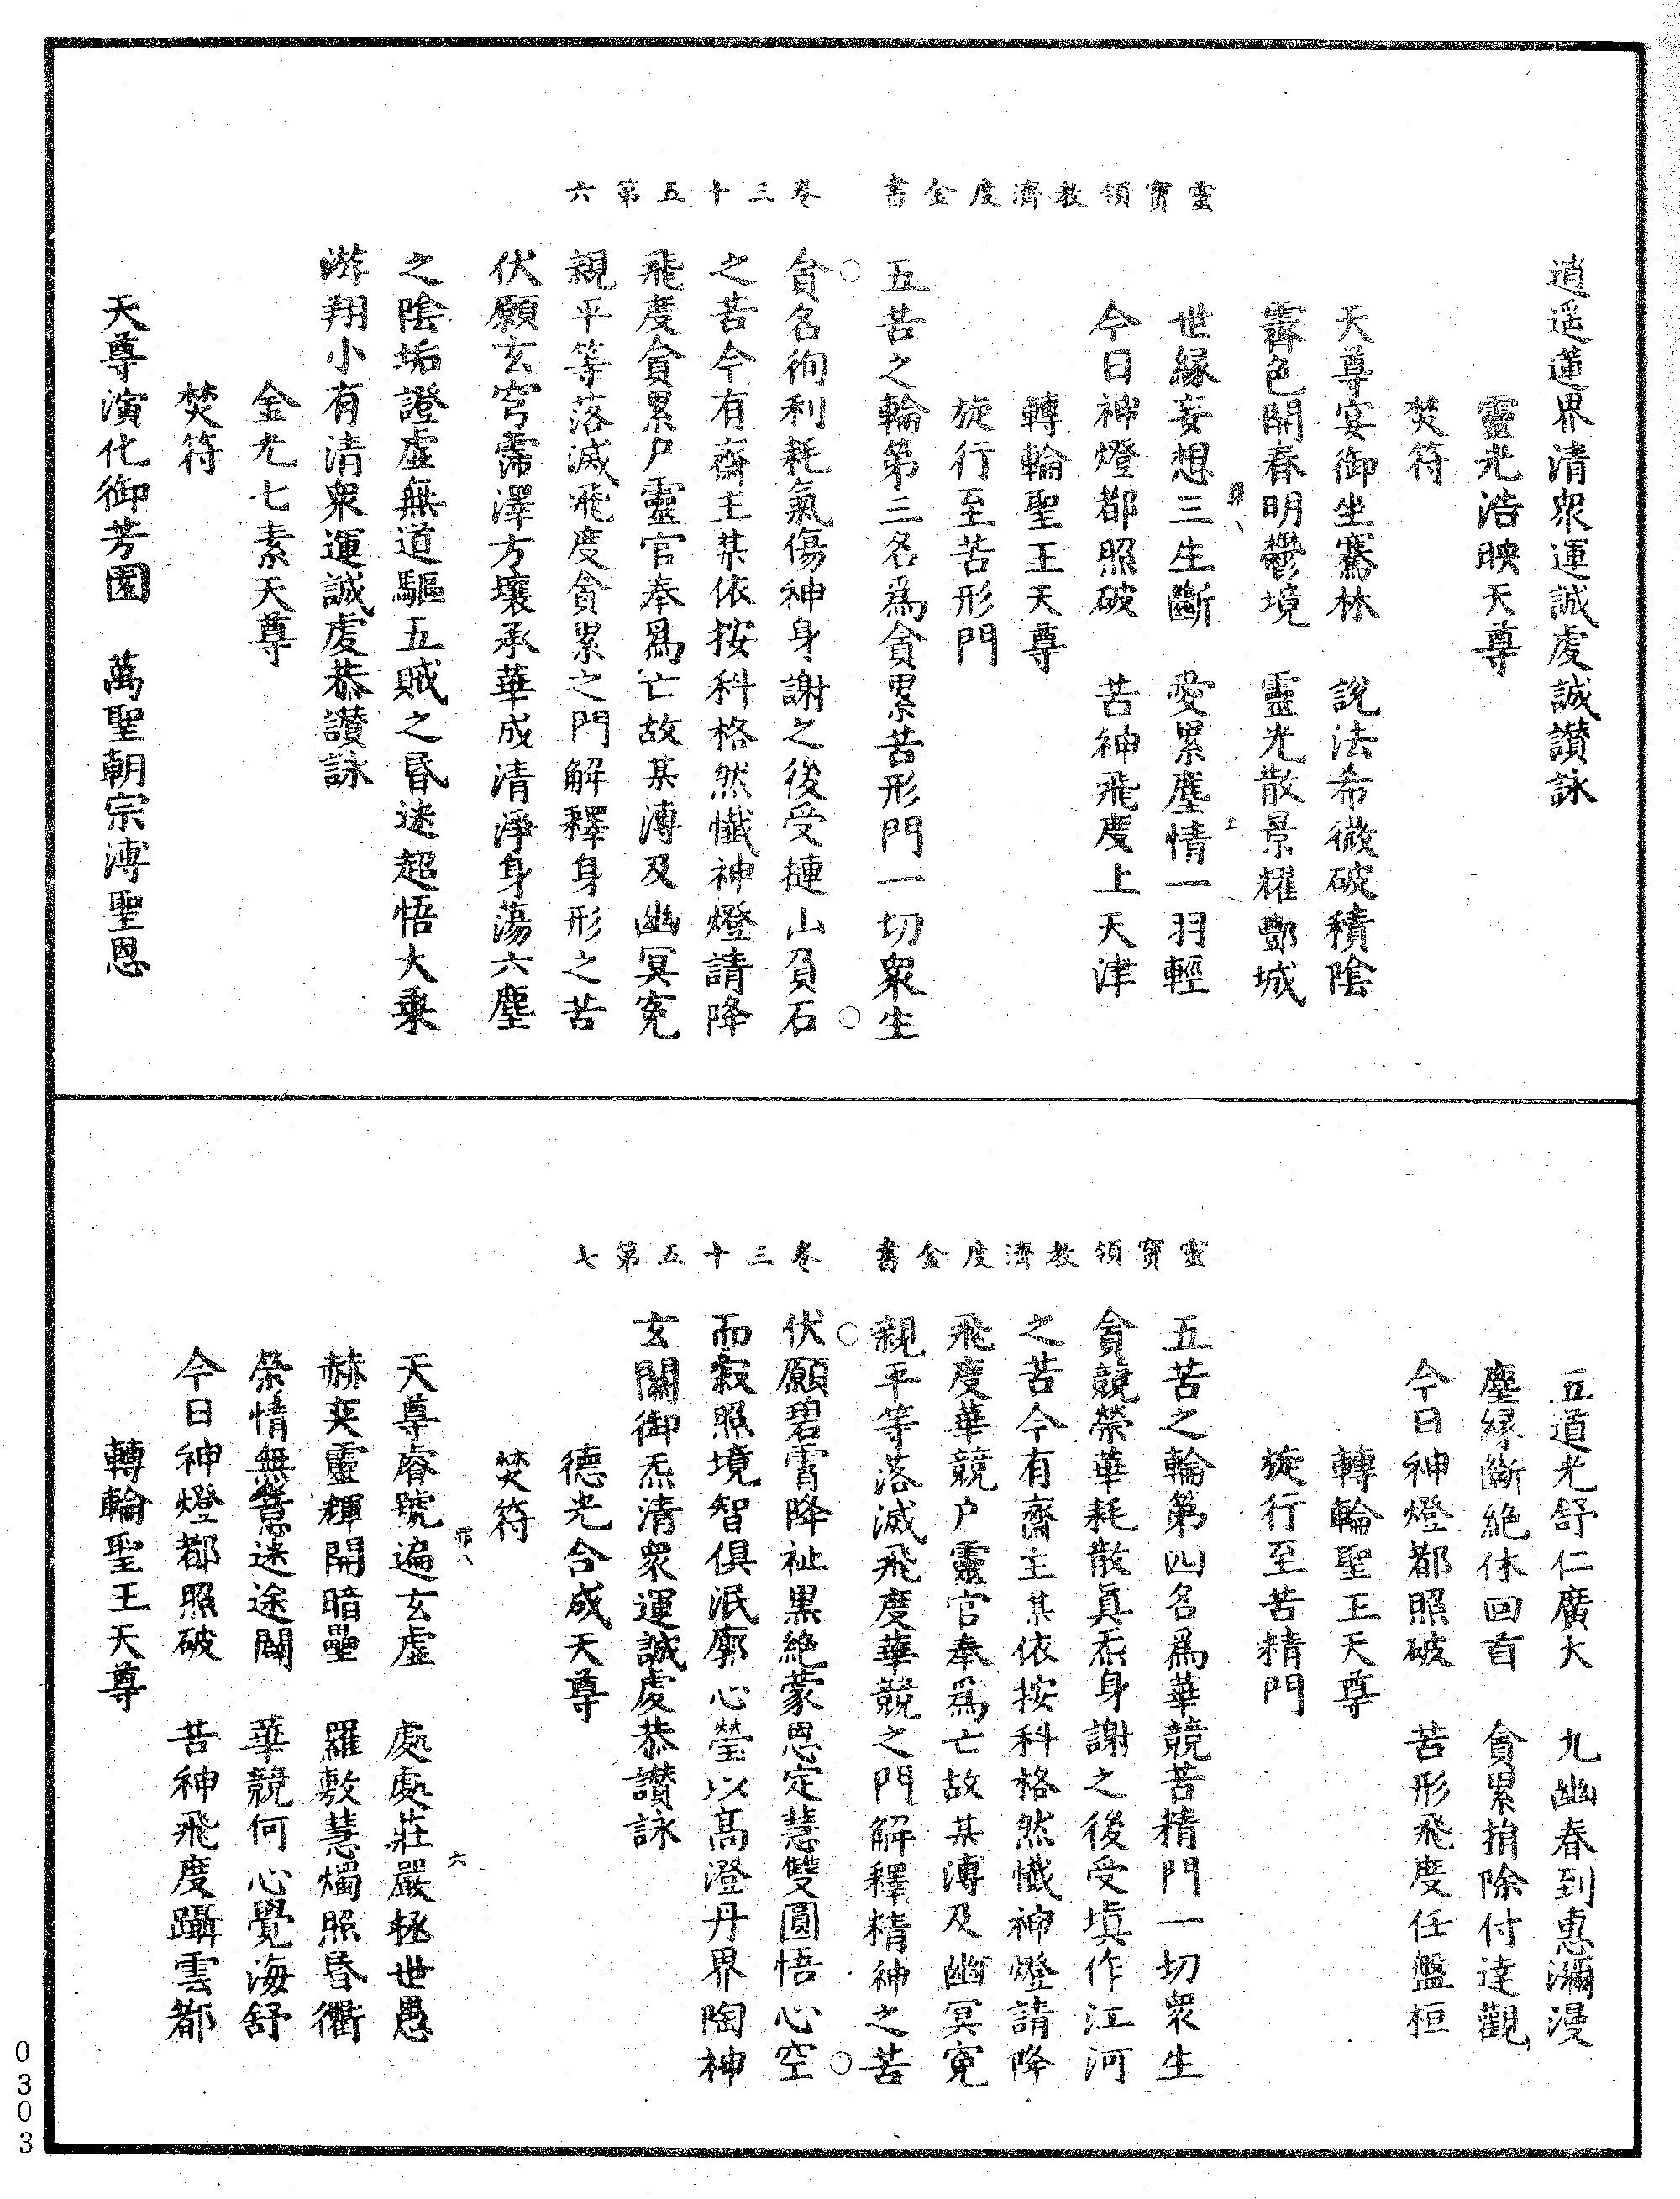 靈寶領教濟度金書　卷三十五第六
逍遥蓮界清衆運誠處誠讃詠
靈光浩映天尊
焚符
天尊宴御坐騫林　說法希微破積陰
霽色開春明鬱境　靈光散景耀酆城
世縁妄想三生斷　愛累塵情一羽輕
今日神燈都照破　苦神飛度上天津
轉輪聖王天尊
旋行至苦形門
五苦之輪第三名爲貪累苦形門一切衆生
貪名徇利耗氣傷神身謝之後受摙山負石
之苦今有齋主某依按科格然懺神燈請降
飛度貪累户靈官奉爲亡故某溥及幽冥寃
親平等落滅飛度貪累之門解釋身形之苦
伏願玄穹霈澤方壤承華成清淨身蕩六塵
之陰垢證虛無道驅五賊之昬迷超悟大乗
游翔小有清衆運誠處恭讃詠
金光七素天尊
焚符
天尊演化御芳園　萬聖朝宗溥聖恩
靈寶領教濟度金書　卷三十五第七
五道光舒仁廣大　九幽春到惠瀰漫
塵縁斷絶休回首　貪累捐除付達觀
今日神燈都照破　苦形飛度任盤桓
轉輪聖王天尊
旋行至苦精門
五苦之輪第四名爲華競苦精門一切衆生
貪競榮華耗散真炁身謝之後受塡作江河
之苦今有齋主某依按科格然懺神燈請降
飛度華競户靈官奉爲亡故某溥及幽冥寃
親平等落滅飛度華競之門解釋精神之苦
伏願碧霄降祉黒絶蒙恩定慧雙圓悟心空
而寂照境智俱泯廓心瑩以髙澄丹界陶神
玄關御炁清衆運誠處恭讃詠
德光合成天尊
焚符
天尊睿號遍玄虛　處處莊嚴拯世愚
赫奕靈輝開暗壘　羅敷慧燭照昏衢
榮情無意迷途闢　華競何心覺海舒
今日神燈都照破　苦神飛度躡雲都
轉輪聖王天尊
六
0303